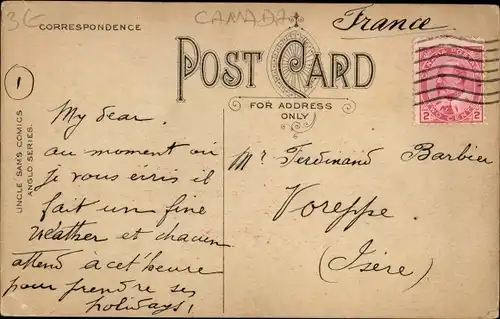 3€
CANADA
France
CORRESPONDENCE
POST CARD
FOR ADDRESS
ONLY
CANADA POSTAGE
2 2
TWO CENTS
1
UNCLE SAMS COMICS
ANGLO SERIES.
My dear.
au moment où
Je vous écris il
fait un fine
weather et chacun
attend à cet'heure
pour prendre ses
holidays!
Mr Ferdinand Barbier
Voreppe
(Isère)